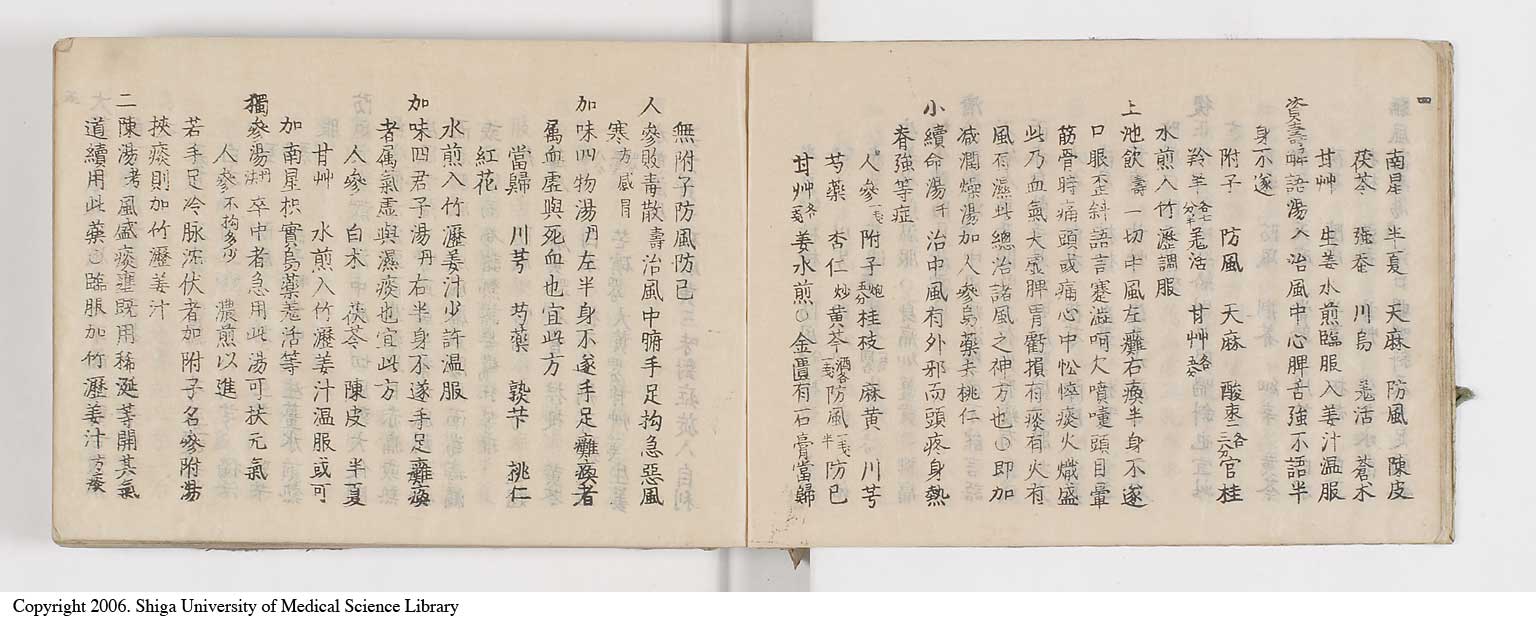 四
南星 半夏 天麻 防風 陳皮
茯苓 殭蚕 川烏 羗活 蒼朮
甘艸 生姜水煎臨服入姜汁温服
資壽解語湯 治風中心脾舌強不語半
身不遂
附子 防風 天麻 酸枣仁各三分官桂
羚羊各七分半羗活 甘艸各五分
水煎入竹瀝調服
上池飲壽一切中風左癱右瘓半身不遂
口眼歪斜語言蹇澁呵欠噴嚔頭目暈
筋骨時痛頭或痛心中忪悸痰火熾盛
此乃血氣大虚脾胃虧損有痰有火有
風有濕此總治諸風之神方也○即加
减潤燥湯加人參烏藥去桃仁
小續命湯千治中風有外邪而頭疼身熱
脊強等症
人參一戔附子炮五分桂枝 麻黄 川芎
芍藥 杏仁炒黄芩酒各一戔防風一戔半防已
甘艸各五戔姜水煎○金匱有石膏當歸
無附子防風防已
人參敗毒散壽治風中腑手足拘急惡風
寒方感冒
加味四物湯丹左半身不遂手足癱瘓者
属血虚與死血也宜此方
當歸 川芎 芍藥 熟芐 桃仁
紅花
水煎入竹瀝姜汁少許温服
加味四君子湯丹右半身不遂手足癱瘓
者属氣虚與濕痰也宜此方
人參 白朮 茯苓 陳皮 半夏
甘艸 水煎入竹瀝姜汁温服或可
加南星枳實烏藥羗活等
獨參湯丹法卒中者急用此湯可扶元氣
人參不拘多少 濃煎以進
若手足冷脉沉伏者加附子名參附湯
挾痰則加竹瀝姜汁
二陳湯考風盛痰壅既用稀涎等開其氣
道續用此藥○臨服加竹瀝姜汁方痰